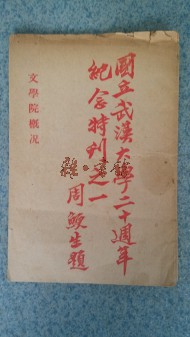 國立武漢大學二十週年
紀念特刊之一
周鯁生題
文學院概况